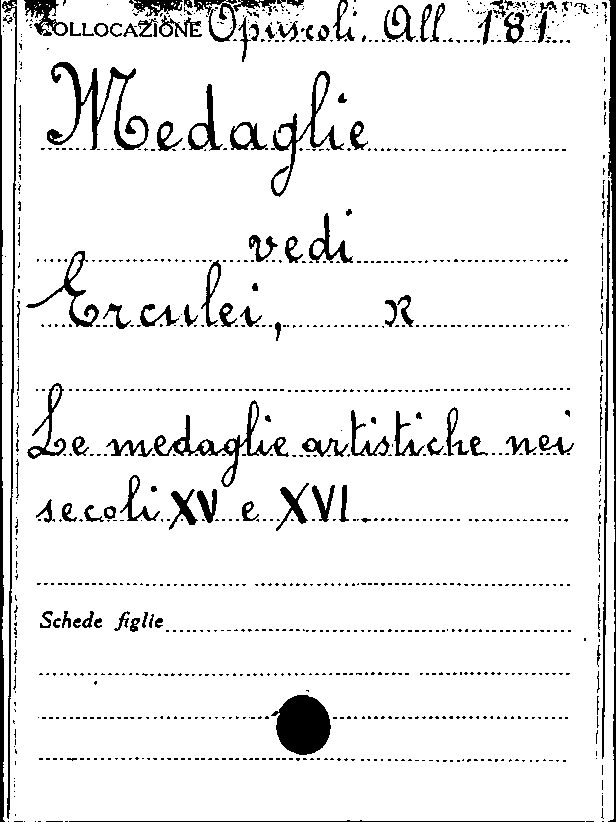 COLLOCAZIONE Opuscoli. All. 181
Medaglie
vedi
Erculei, R
Le medaglie artistiche nei
secoli XV e XVI.
Schede figlie